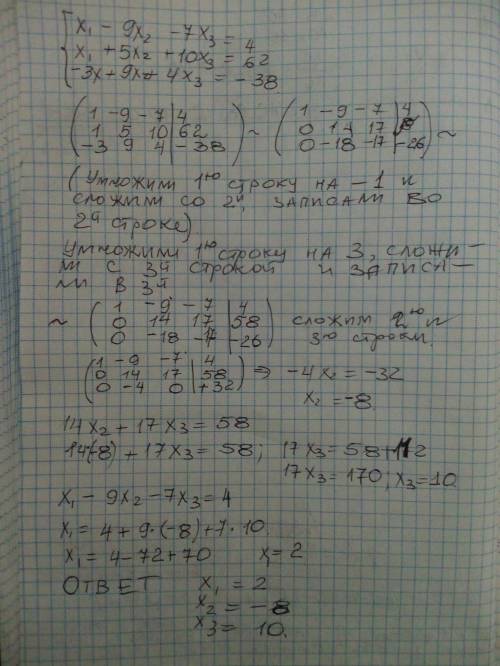 x₁ - 9x₂ - 7x₃ = 4
x₁ + 5x₂ + 10x₃ = 62
-3x + 9x₂ 4x₃ = -38
1 -9 -7 | 4 ~ 1 -9 -7 | 4
1 5 10 | 62 0 14 17 | ~
-3 9 4 | -38 0 -18 -17 | -26
(Умножим 1ю строку на -1 и
сложим со 2й, записали во
2й строке)
Умножим 1ю строку на 3, сложи-
м с 3й строкой и записа-
ли в 3й
1 -9 -7 | 4
~ 0 14 17 | 58 сложим 2ю и
0 -18 -17 | -26 3ю строки.
1 -9 -7 4
0 14 17 | 58 ⇒ -4x₂ = -32
0 -4 0 | +32 x₂ = -8
14x₂ + 17x₃ = 58
14(-8) + 17x₃ = 58; 17x₃ = 58+112
17x₃ = 170; x₃ = 10.
x₁ - 9x₂ - 7x₃ = 4
x₁ = 4 + 9·(-8) + 7·10.
x₁ = 4 - 72 + 70 x₁ = 2
Ответ x₁ = 2
x₂ = -8
x₃ = 10.